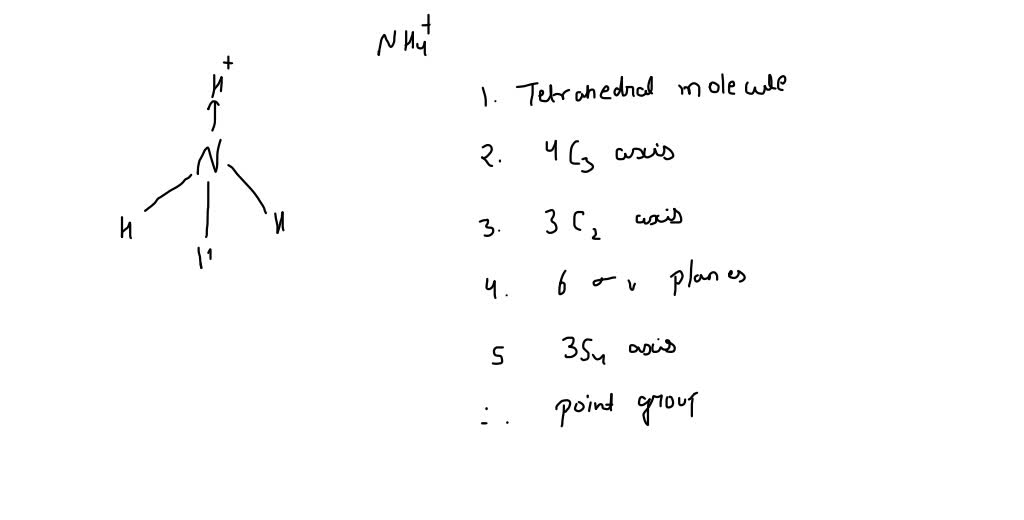 NH4+
H+
N
H
H
H
1. Tetrahedral molecule
2. 4C3 axis
3. 3C2 axis
4. 6σv planes
5 3S4 axis
∴ point group